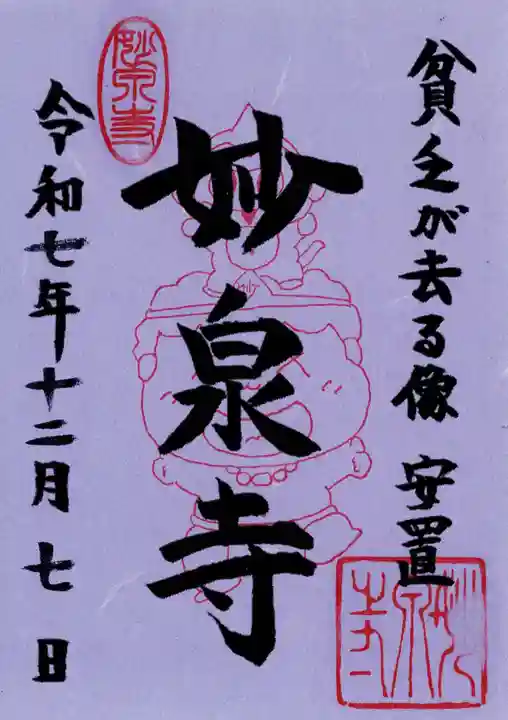 貧乏が去る像 安置
妙泉寺
令和七年十二月七日
妙泉寺
妙泉寺